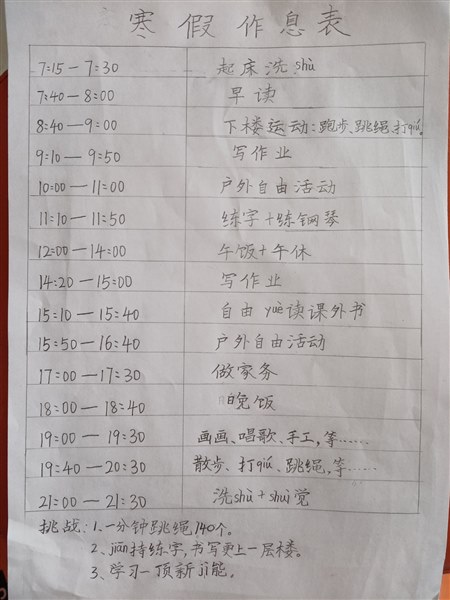 寒假作息表
7:15—7:30 起床洗shù
7:40—8:00 早读
8:40—9:00 下楼运动:跑步、跳绳、打qiú。
9:10—9:50 写作业
10:00—11:00 户外自由活动
11:10—11:50 练字+练钢琴
12:00—14:00 午饭+午休
14:20—15:00 写作业
15:10—15:40 自由yuè读课外书
15:50—16:40 户外自由活动
17:00—17:30 做家务
18:00—18:40 晚饭
19:00—19:30 画画、唱歌、手工,等……
19:40—20:30 散步、打qiú、跳绳,等……
21:00—21:30 洗shù+shuì觉
挑战:1、一分钟跳绳140个。
2、jiān持练字,书写更上一层楼。
3、学习一顶新jì能。